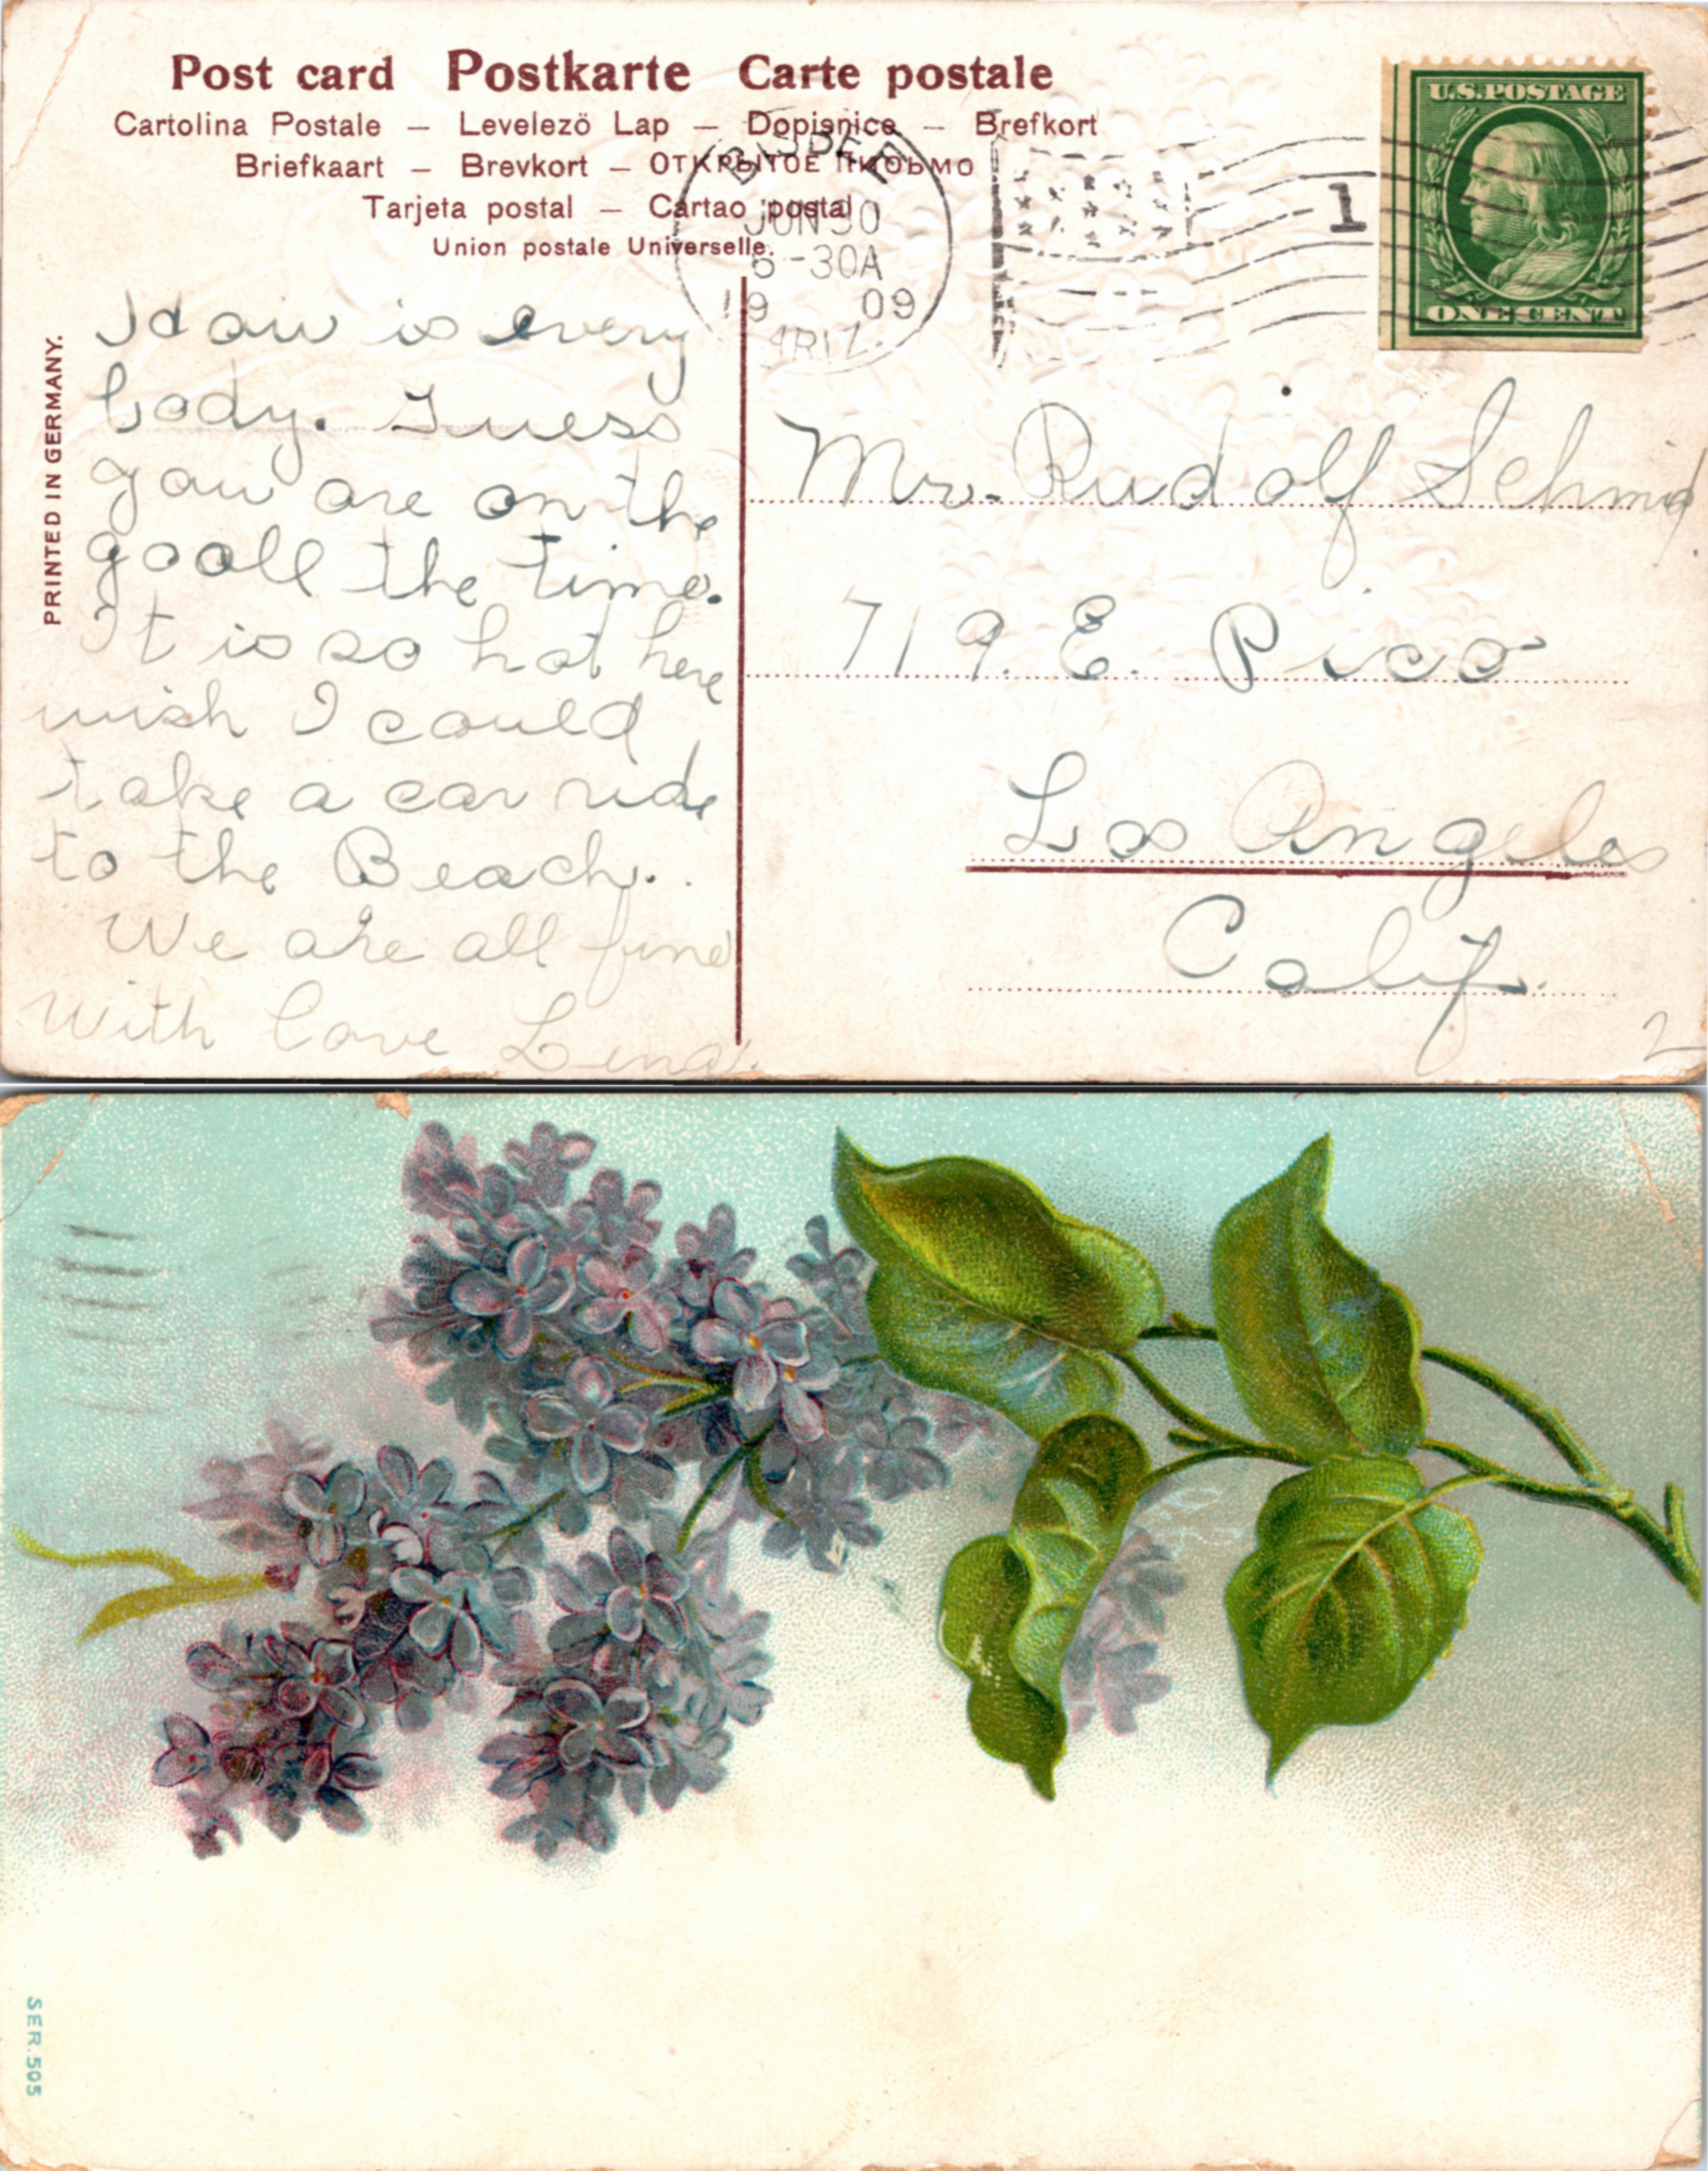 Post card Postkarte Carte postale
Cartolina Postale — Levelezö Lap — Dopisnice — Brefkort
Briefkaart — Brevkort — Открытое письмо
Tarjeta postal — Cartao postal
Union postale Universelle.
BISBEE
JUN 30
-30A
19 09
ARIZ.
1
U.S.POSTAGE
ONE CENT
PRINTED IN GERMANY.
is every
body. Guess
you are on the
go all the time.
It is so hot here
wish I could
take a car ride
to the Beach.
We are all fine
With love Lena.
Mr. Rudolf Schmid
719. E. Pico
Los Angeles
Calif.
2
SER. 505